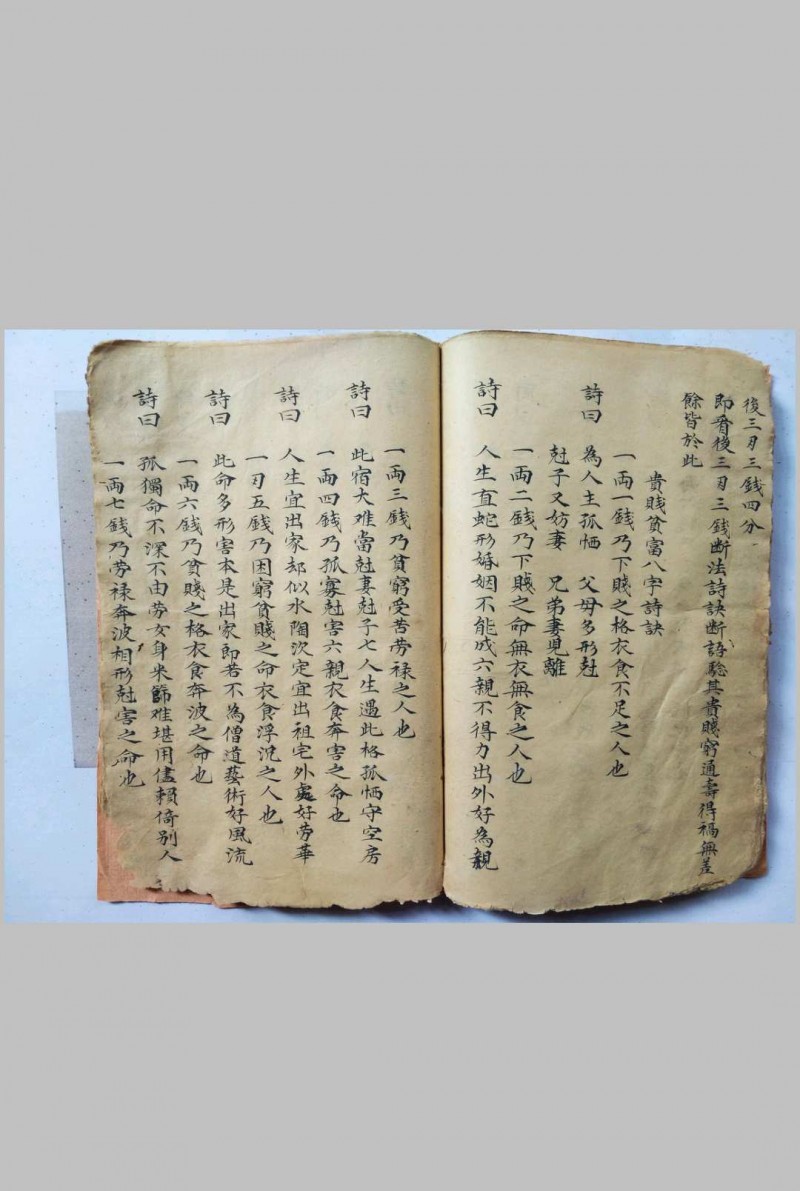 後三刃三錢四分
即看後三刃三錢断法詩訣断語聡其貴賤窮通壽得禍無差
餘皆於此
貴賤貧富八字詩訣
一両一錢乃下賤之格衣食不足之人也
詩曰 為人主孤恓 父母多形尅
尅子又妨妻 兄弟妻児離
一両二錢乃下賤之命無衣無食之人也
詩曰 人生直蛇形婚姻不能成六親不得力出外好為親
一両三錢乃貧窮受苦劳禄之人也
詩曰 此宿大难當尅妻尅子七人生遇此格孤恓守空房
一両四錢乃孤寡尅害六親衣食奔害之命也
詩曰 人生宜出家却似水陶沙定宜出祖宅外處好劳華
一刃五錢乃困窮貧賤之命衣食浮況之人也
詩曰 此命多形害本是出家郎若不為僧道藝術好風流
一両六錢乃貧賤之格衣食奔波之命也
詩曰 孤獨命不深不由劳女身米篩难堪用儘賴倚别人
一両七錢乃劳禄奔波相形尅害之命也